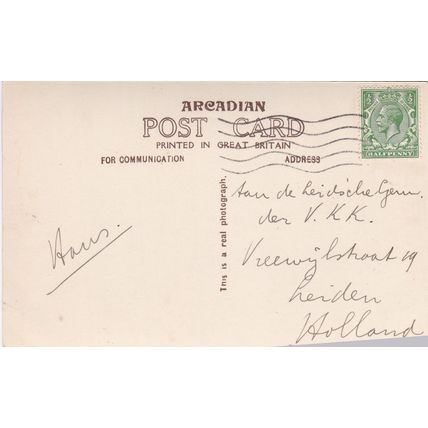 ARCADIAN
POST CARD
PRINTED IN GREAT BRITAIN
FOR COMMUNICATION
ADDRESS
This is a real photograph.
½ ½
HALFPENNY
Hans.
Aan de Leidsche Gem.
der V.K.K.
Vreewijkstraat 19
Leiden
Holland